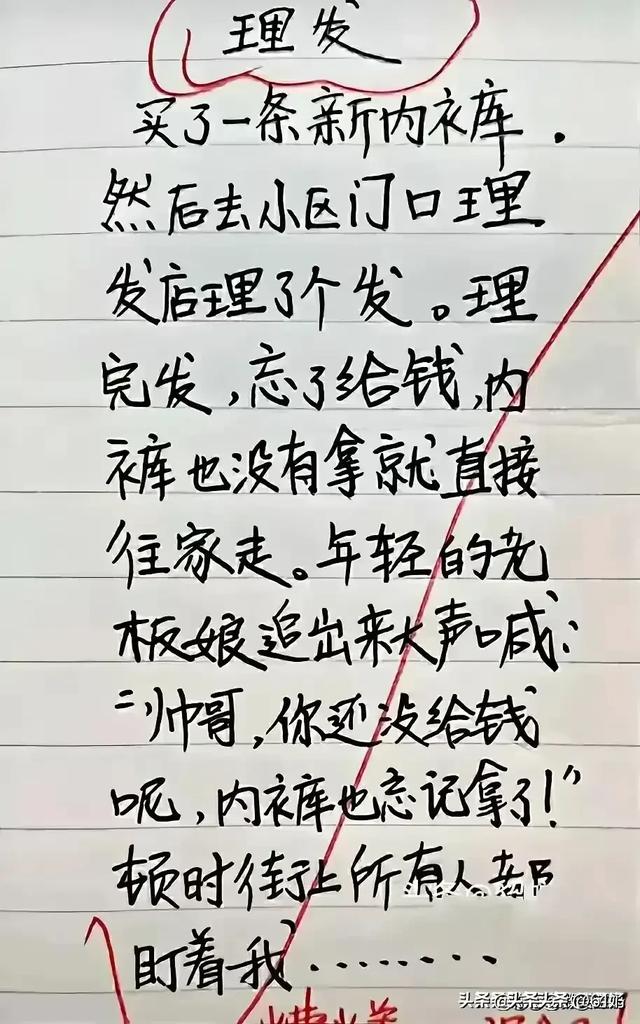 理发
买了一条新内裤.
然后去小区门口理
发店理了个发。理
完发,忘了给钱,内
裤也没有拿就直接
往家走。年轻的老
板娘追出来大声喊:
“帅哥,你还没给钱
呢,内裤也忘记拿了!”
顿时街上所有人都
盯着我........